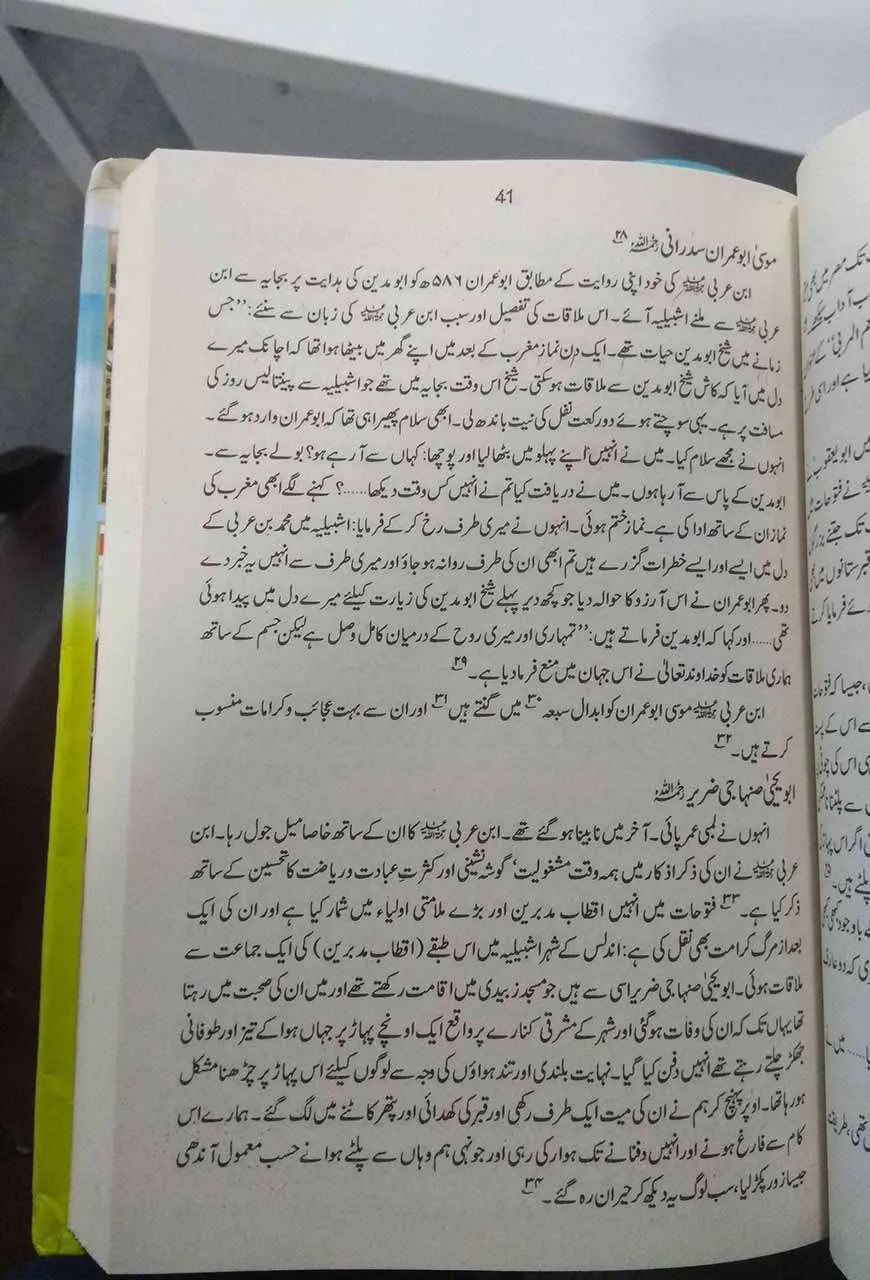 41
موسیٰ ابو عمران سدرانی رحمۃ اللہ ۲۸
ابن عربی رحمۃ اللہ علیہ کی خود اپنی روایت کے مطابق ابو عمران ۵۸۶ھ کو ابو مدین کی ہدایت پر بجایہ سے ابن
عربی رحمۃ اللہ علیہ سے ملنے اشبیلیہ آئے۔ اس ملاقات کی تفصیل اور سبب ابن عربی رحمۃ اللہ علیہ کی زبان سے سنئے: ’’جس
زمانے میں شیخ ابو مدین حیات تھے۔ ایک دن نماز مغرب کے بعد میں اپنے گھر میں بیٹھا ہوا تھا کہ اچانک میرے
دل میں آیا کہ کاش شیخ ابو مدین سے ملاقات ہوسکتی۔ شیخ اس وقت بجایہ میں تھے جو اشبیلیہ سے پینتالیس روز کی
مسافت پر ہے۔ یہی سوچتے ہوئے دو رکعت نفل کی نیت باندھ لی۔ ابھی سلام پھیرا ہی تھا کہ ابو عمران وارد ہوگئے۔
انہوں نے مجھے سلام کیا۔ میں نے انہیں اپنے پہلو میں بٹھا لیا اور پوچھا: کہاں سے آ رہے ہو؟ بولے بجایہ سے۔
ابو مدین کے پاس سے آ رہا ہوں۔ میں نے دریافت کیا تم نے انہیں کس وقت دیکھا......؟ کہنے لگے ابھی مغرب کی
نماز ان کے ساتھ ادا کی ہے۔ نماز ختم ہوئی۔ انہوں نے میری طرف رخ کر کے فرمایا: اشبیلیہ میں محمد بن عربی کے
دل میں ایسے اور ایسے خطرات گزرے ہیں تم ابھی ان کی طرف روانہ ہو جاؤ اور میری طرف سے انہیں یہ خبر دے
دو۔ پھر ابو عمران نے اس آرزو کا حوالہ دیا جو کچھ دیر پہلے شیخ ابو مدین کی زیارت کیلئے میرے دل میں پیدا ہوئی
تھی......اور کہا کہ ابو مدین فرماتے ہیں: ’’تمہاری اور میری روح کے درمیان کامل وصل ہے لیکن جسم کے ساتھ
ہماری ملاقات کو خداوند تعالیٰ نے اس جہان میں منع فرما دیا ہے۔ ۲۹
ابن عربی رحمۃ اللہ علیہ موسی ابو عمران کو ابدال سبعہ ۳۰ میں گنتے ہیں ۳۱ اور ان سے بہت عجائب و کرامات منسوب
کرتے ہیں۔ ۳۲
ابو یحییٰ صنہاجی ضریر رحمۃ اللہ
انہوں نے لمبی عمر پائی۔ آخر میں نابینا ہوگئے تھے۔ ابن عربی رحمۃ اللہ علیہ کا ان کے ساتھ خاصا میل جول رہا۔ ابن
عربی رحمۃ اللہ علیہ نے ان کی ذکر اذکار میں ہمہ وقت مشغولیت‘ گوشہ نشینی اور کثرتِ عبادت و ریاضت کا تحسین کے ساتھ
ذکر کیا ہے۔ ۳۳ فتوحات میں انہیں اقطاب مدبرین اور بڑے ملامتی اولیاء میں شمار کیا ہے اور ان کی ایک
بعد از مرگ کرامت بھی نقل کی ہے: اندلس کے شہر اشبیلیہ میں اس طبقے (اقطاب مدبرین) کی ایک جماعت سے
ملاقات ہوئی۔ ابو یحییٰ صنہاجی ضریر اسی سے ہیں جو مسجد زبیدی میں اقامت رکھتے تھے اور میں ان کی صحبت میں رہتا
تھا یہاں تک کہ ان کی وفات ہوگئی اور شہر کے مشرقی کنارے پر واقع ایک اونچے پہاڑ پر جہاں ہوا کے تیز اور طوفانی
جھکڑ چلتے رہتے تھے انہیں دفن کیا گیا۔ نہایت بلندی اور تند ہواؤں کی وجہ سے لوگوں کیلئے اس پہاڑ پر چڑھنا مشکل
ہو رہا تھا۔ اوپر پہنچ کر ہم نے ان کی میت ایک طرف رکھی اور قبر کی کھدائی اور پتھر کاٹنے میں لگ گئے۔ ہمارے اس
کام سے فارغ ہونے اور انہیں دفنانے تک ہوا رکی رہی اور جونہی ہم وہاں سے پلٹے ہوا نے حسب معمول آندھی
جیسا زور پکڑ لیا، سب لوگ یہ دیکھ کر حیران رہ گئے۔ ۳۴